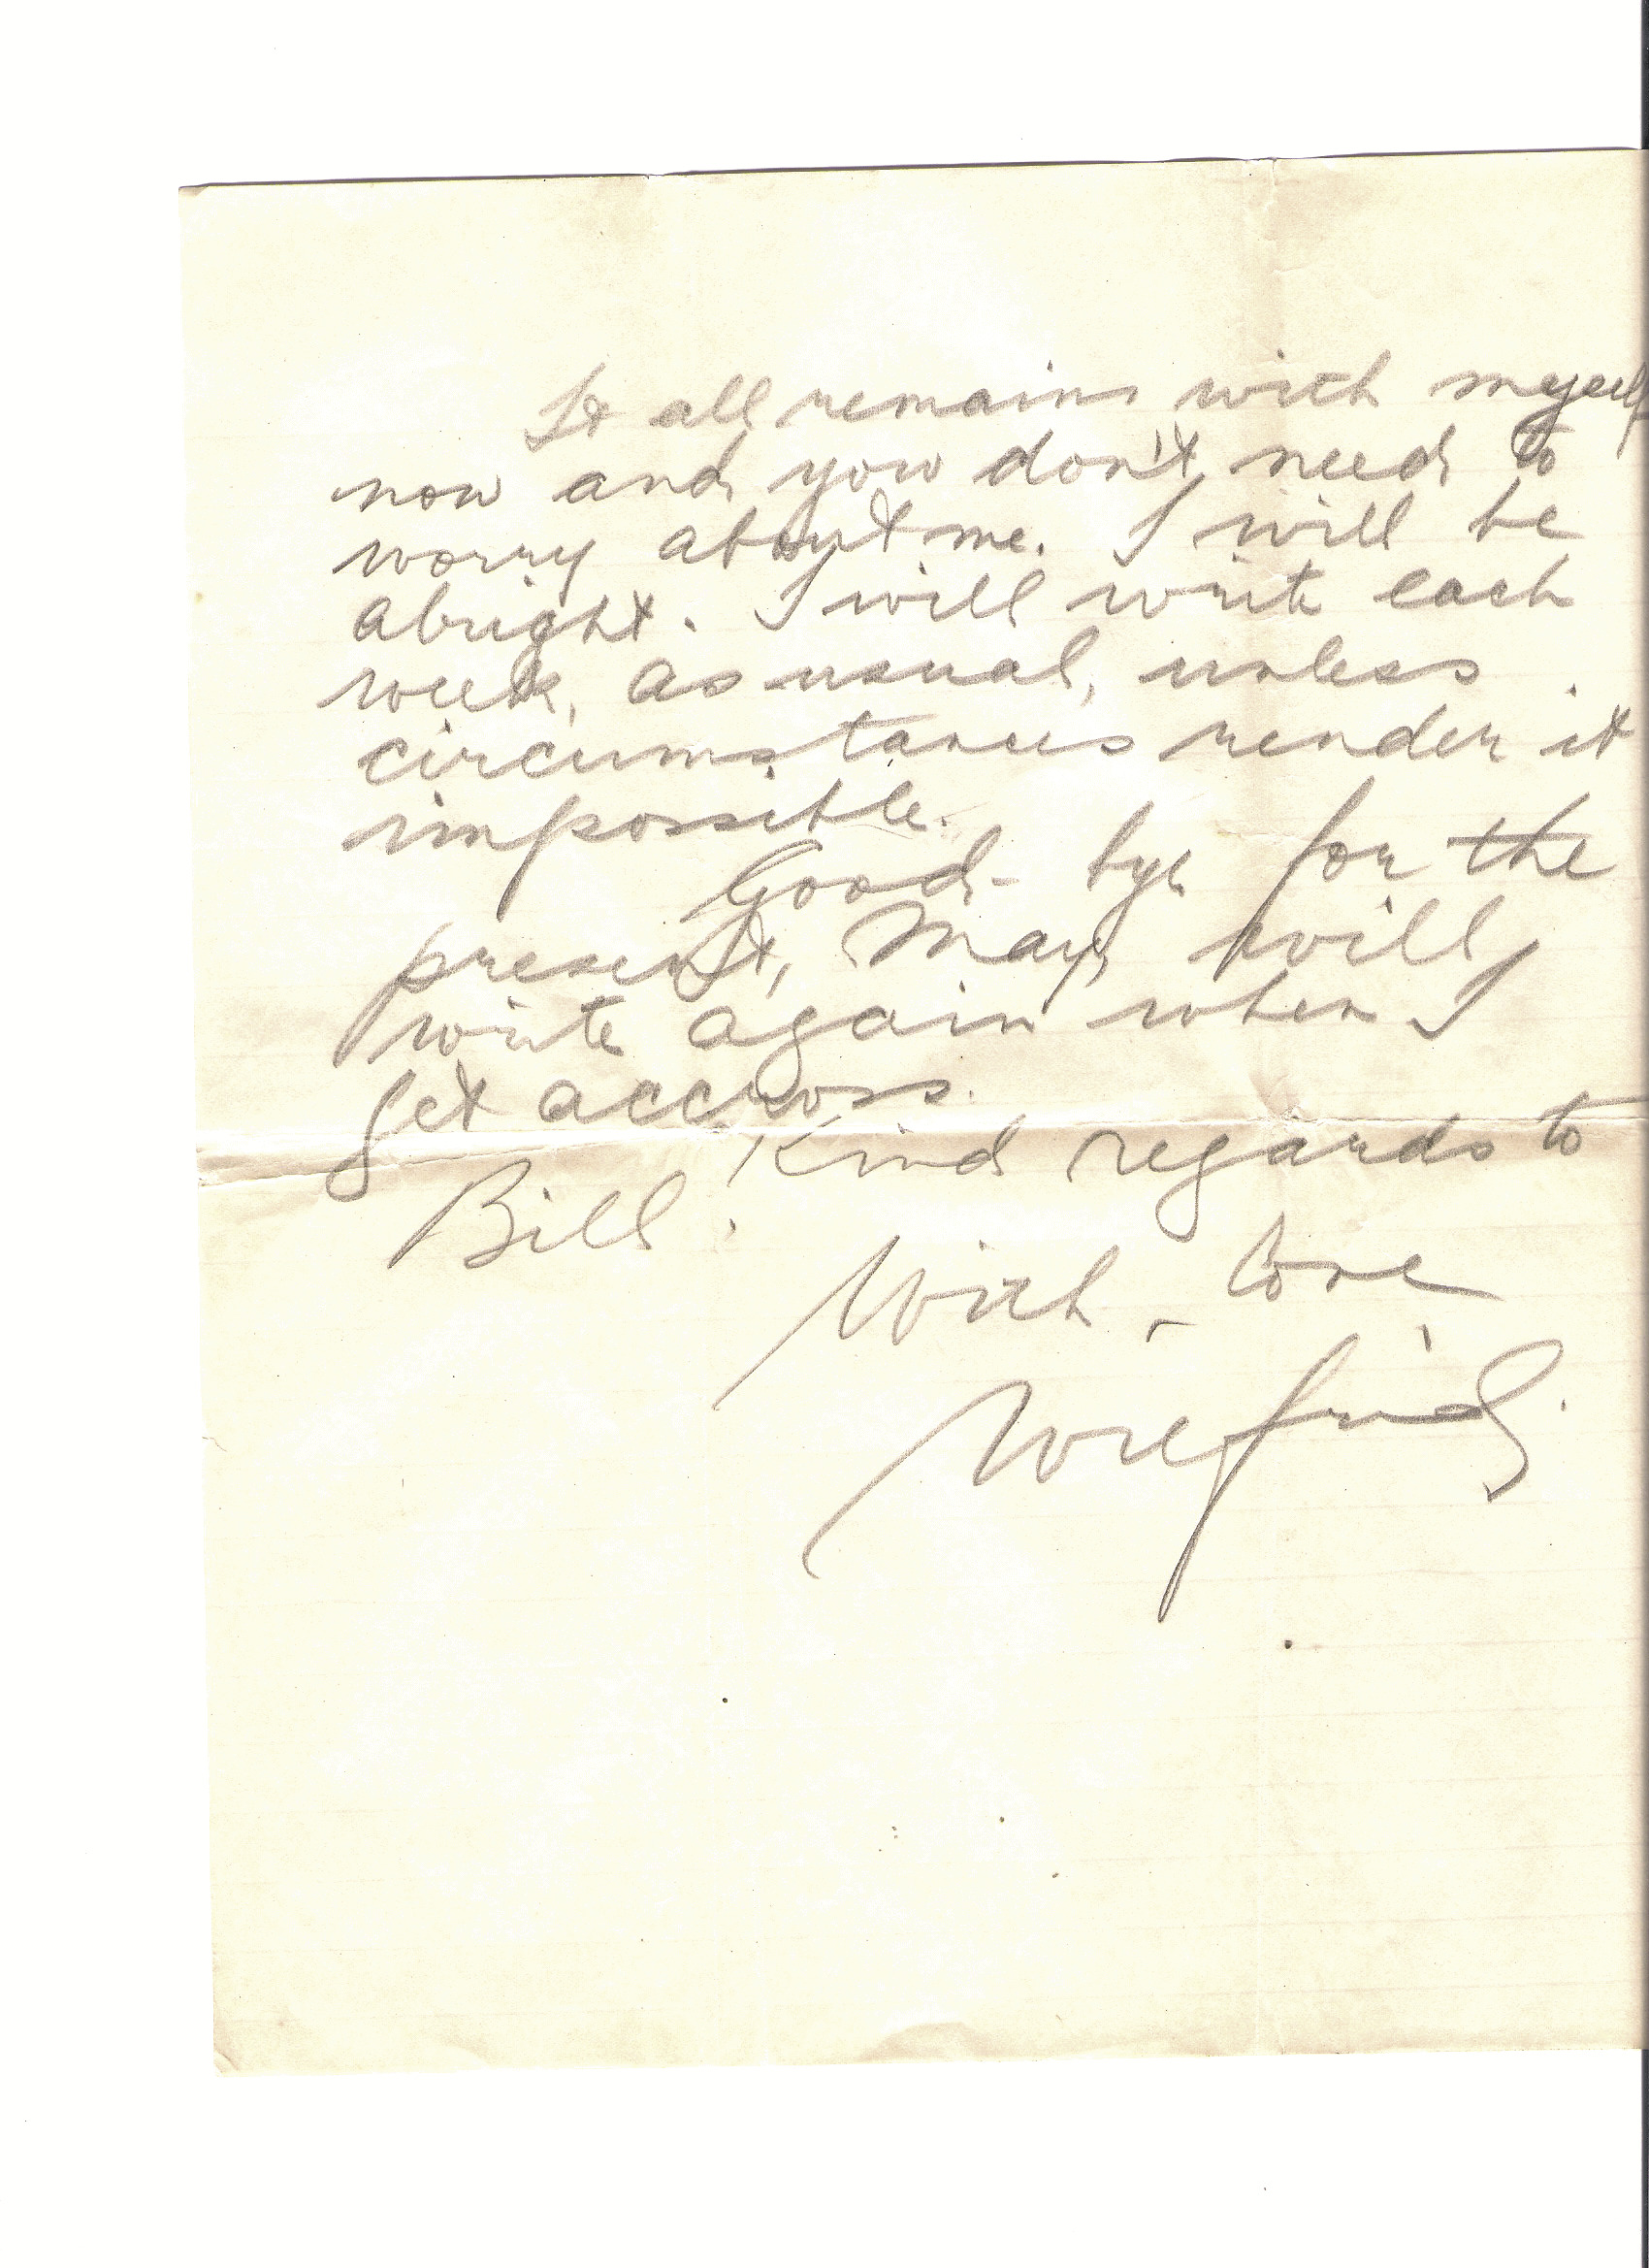 It all remains with myself
now and you don't need to
worry about me. I will be
alright. I will write each
week, as usual, unless
circumstances render it
impossible.
Good-bye for the
present, May, will
write again when I
get accross.
Kind regards to
Bill.
With love
Wilfrid.